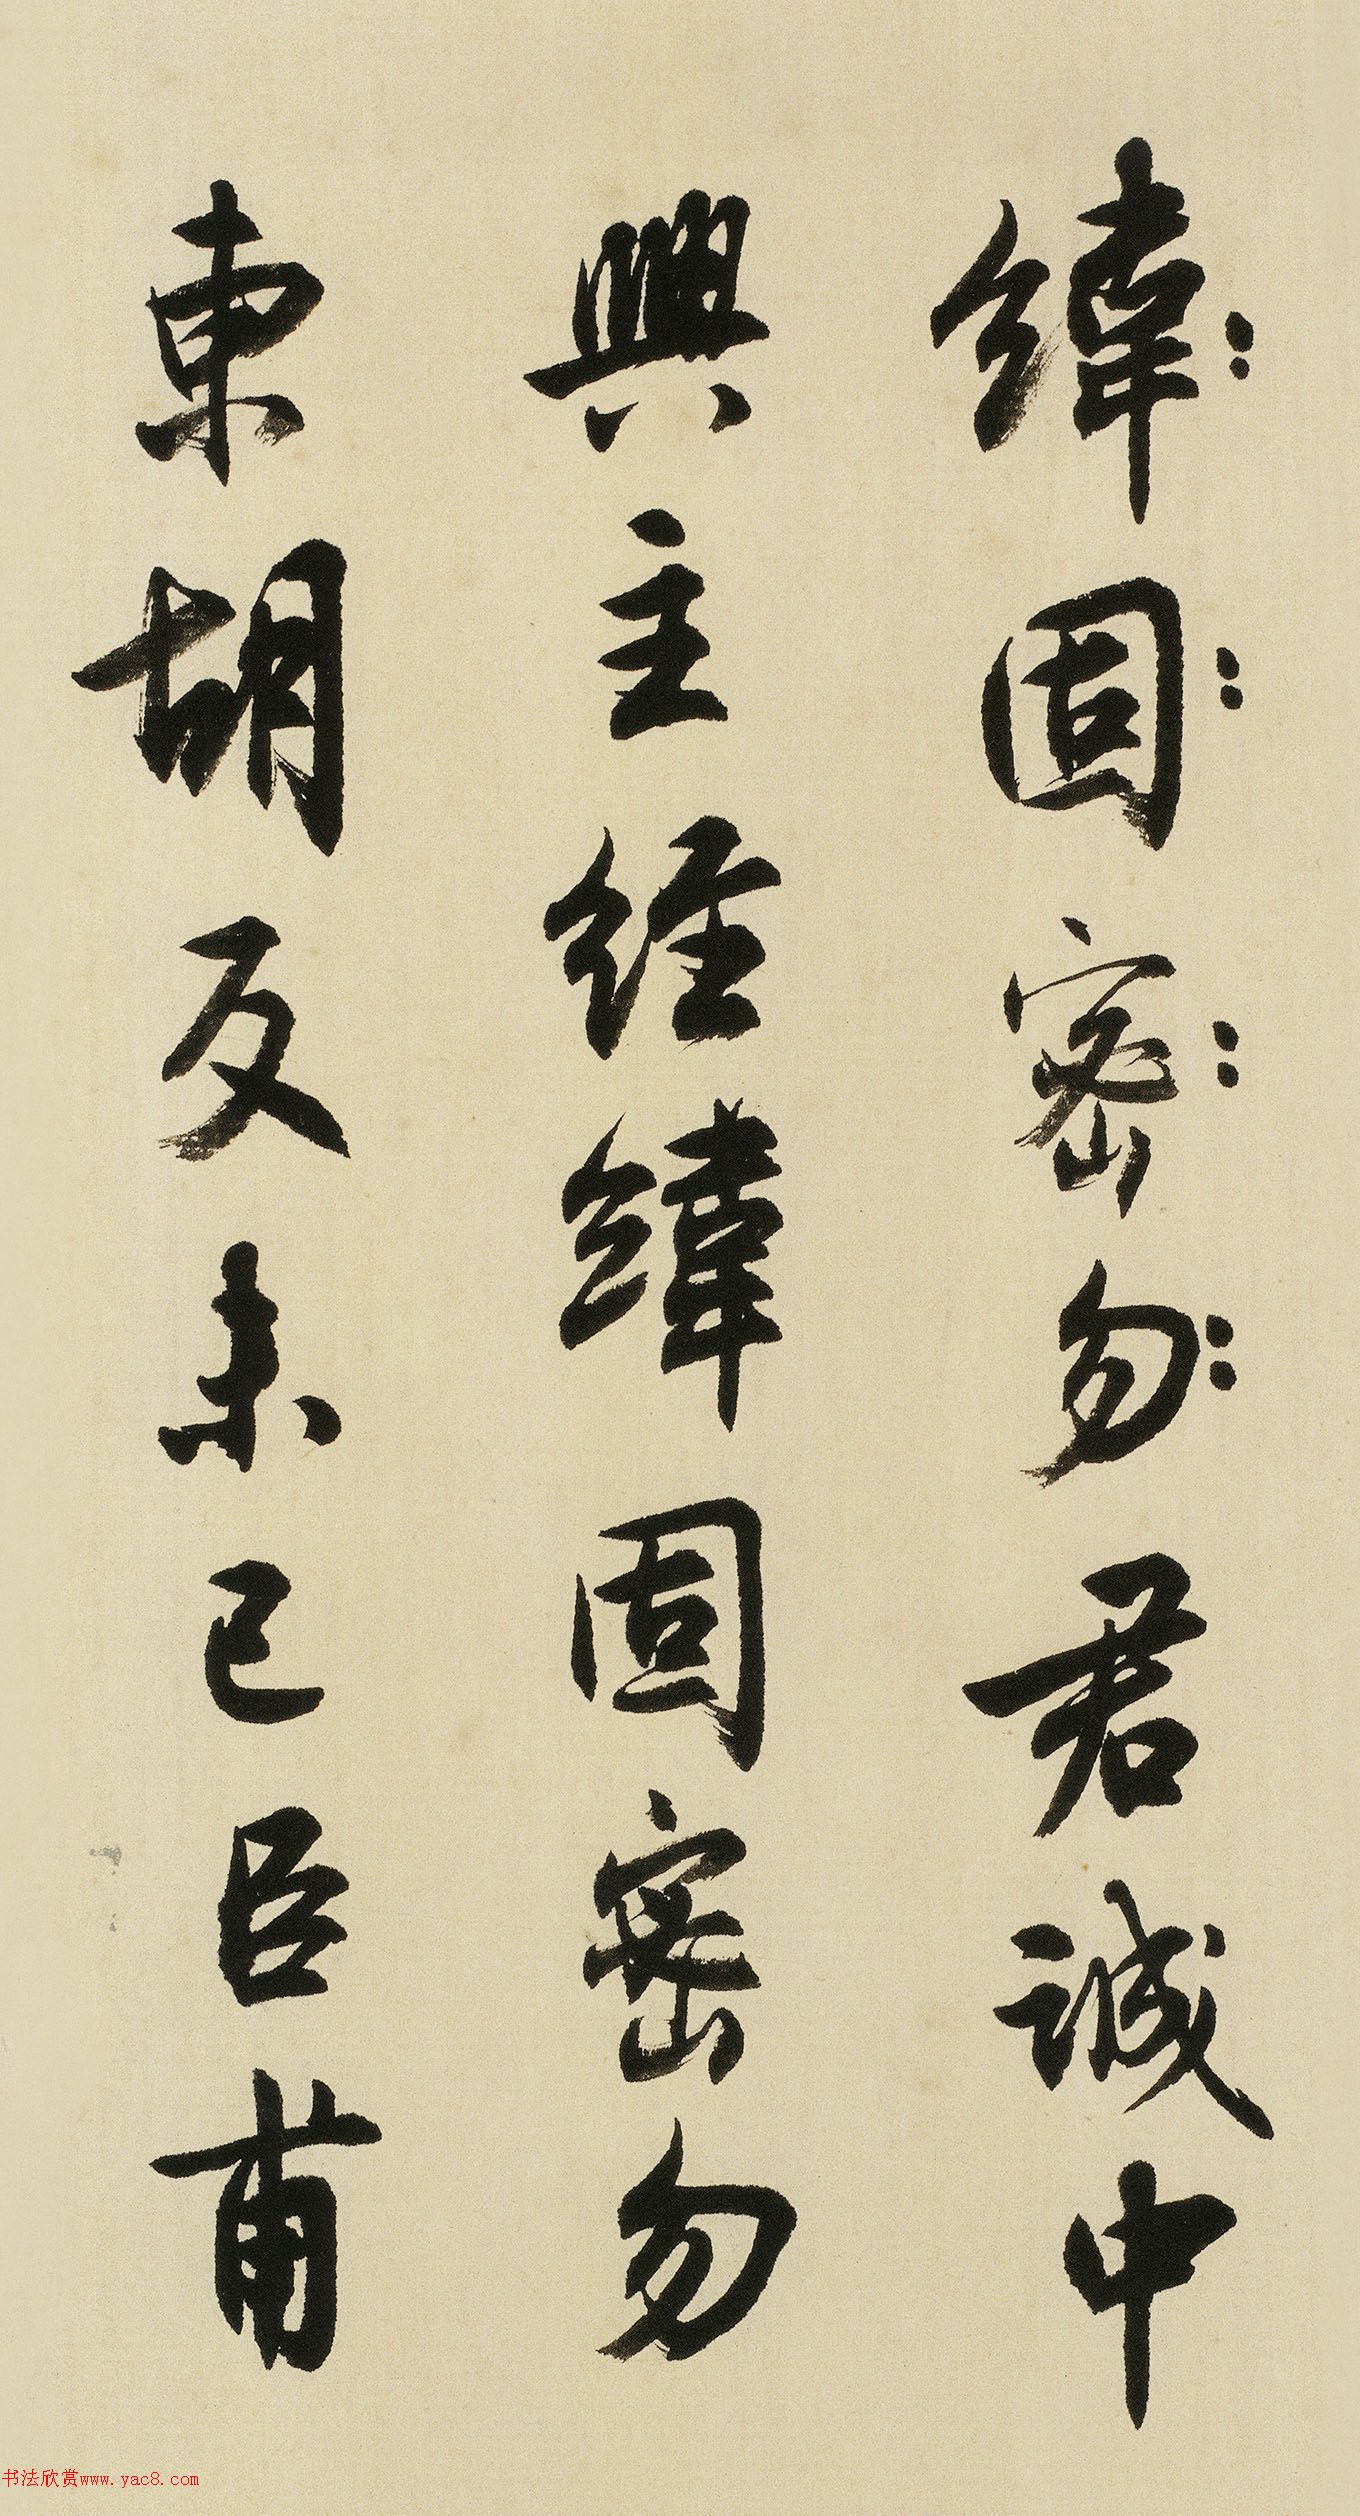 緯固密勿君誠中
興主經緯固密勿
東胡反未已臣甫
书法欣赏www.yac8.com